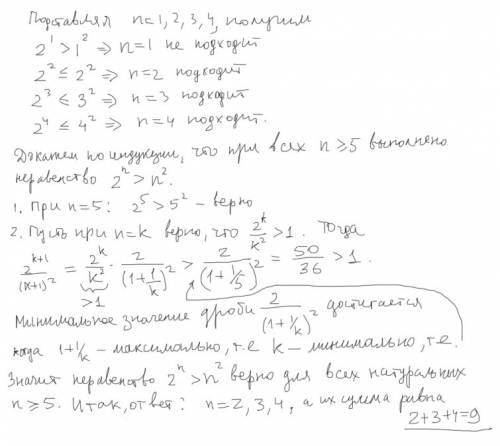 Подставляя n=1,2,3,4, получим
2^1 > 1^2 ⇒ n=1 не подходит
2^2 ≤ 2^2 ⇒ n=2 подходит
2^3 ≤ 3^2 ⇒ n=3 подходит
2^4 ≤ 4^2 ⇒ n=4 подходит.
Докажем по индукции, что при всех n ≥ 5 выполнено
неравенство 2^n > n^2.
1. При n=5: 2^5 > 5^2 – верно
2. Пусть при n=k верно, что 2^k/k^2 > 1. Тогда
2^(k+1)/(k+1)^2 = 2^k/k^2 · 2/(1+1/k)^2 > 2/(1+1/5)^2 = 50/36 > 1.
>1
Минимальное значение дроби 2/(1+1/k)^2 достигается
когда 1+1/k – максимально, т.е k – минимально, т.е.
Значит неравенство 2^n > n^2 верно для всех натуральных
n ≥ 5. Итак, ответ: n=2,3,4, а их сумма равна
2+3+4=9